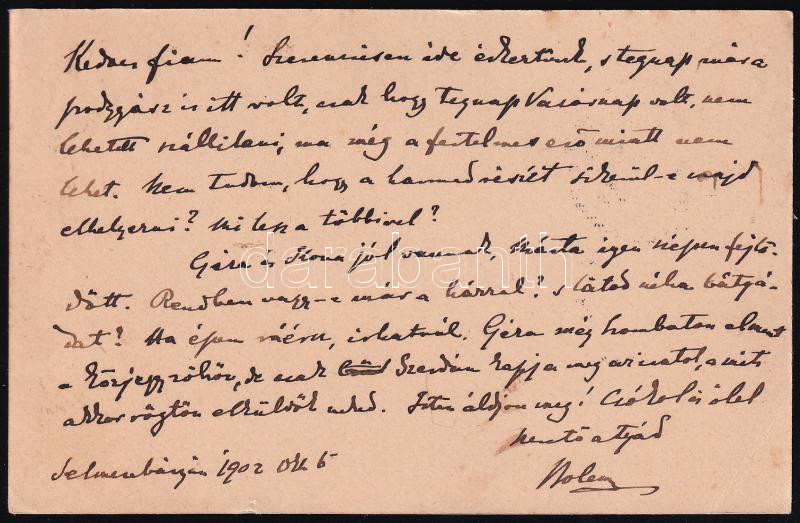 Kedves fiam! Szerencsésen ide érkeztünk, s tegnap már a
podgyász is itt volt, csak hogy tegnap Vasárnap volt, nem
lehetett szállitani, ma még a fertelmes eső miatt nem
lehet. Nem tudom, hogy a harmadrészét sikerül-e majd
elhelyezni? Mi lesz a többivel?
Géza és Ilona jól vannak, Márta igen szépen fejlő-
dött. Rendben vagy-e már a házzal? s látod néha bátyá-
dat? Ha épen ráérsz, irhatnál. Géza még szombaton elment
a közjegyzőhöz, de csak Szerdán kapja meg az iratot, a mit
akkor rögtön elküldök neked. Isten áldjon meg! Csókol és ölel
szerető atyád
Selmeczbányán 1902 Okt 6
darabanth